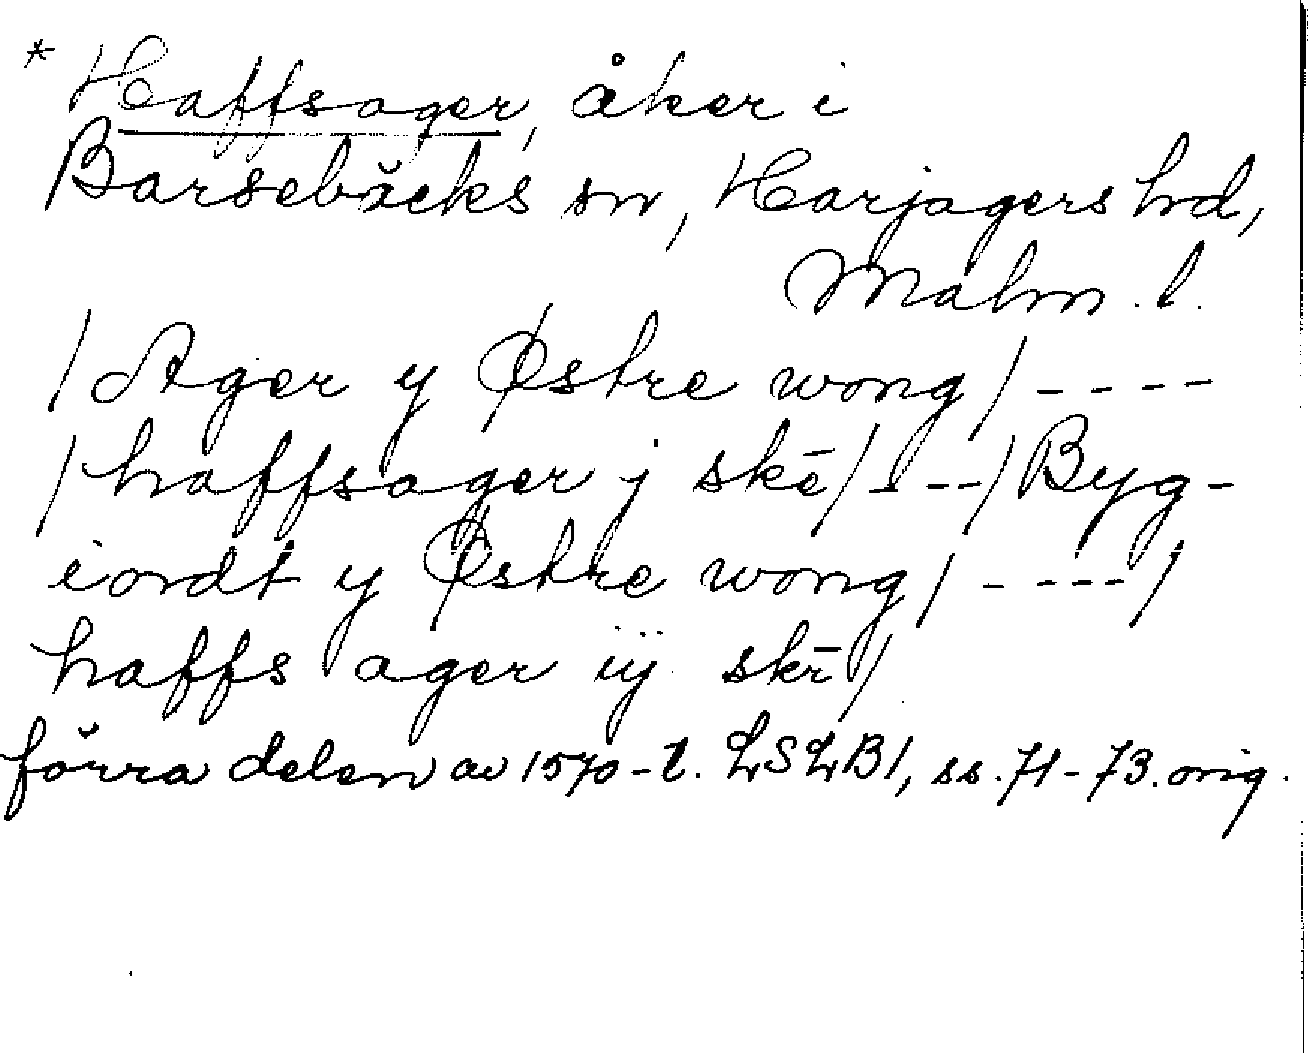 * Haffsager, åker i
Barsebäcks sn, Harjagers hd,
Malm. l.
/Ager y Østre wong/ ----
/haffsager j skē/ ---/Byg-
iordt y Østre wong/ ----/
haffs ager iij skē/
förra delen av 1570-t. LSLB1, ss. 71-73. orig.